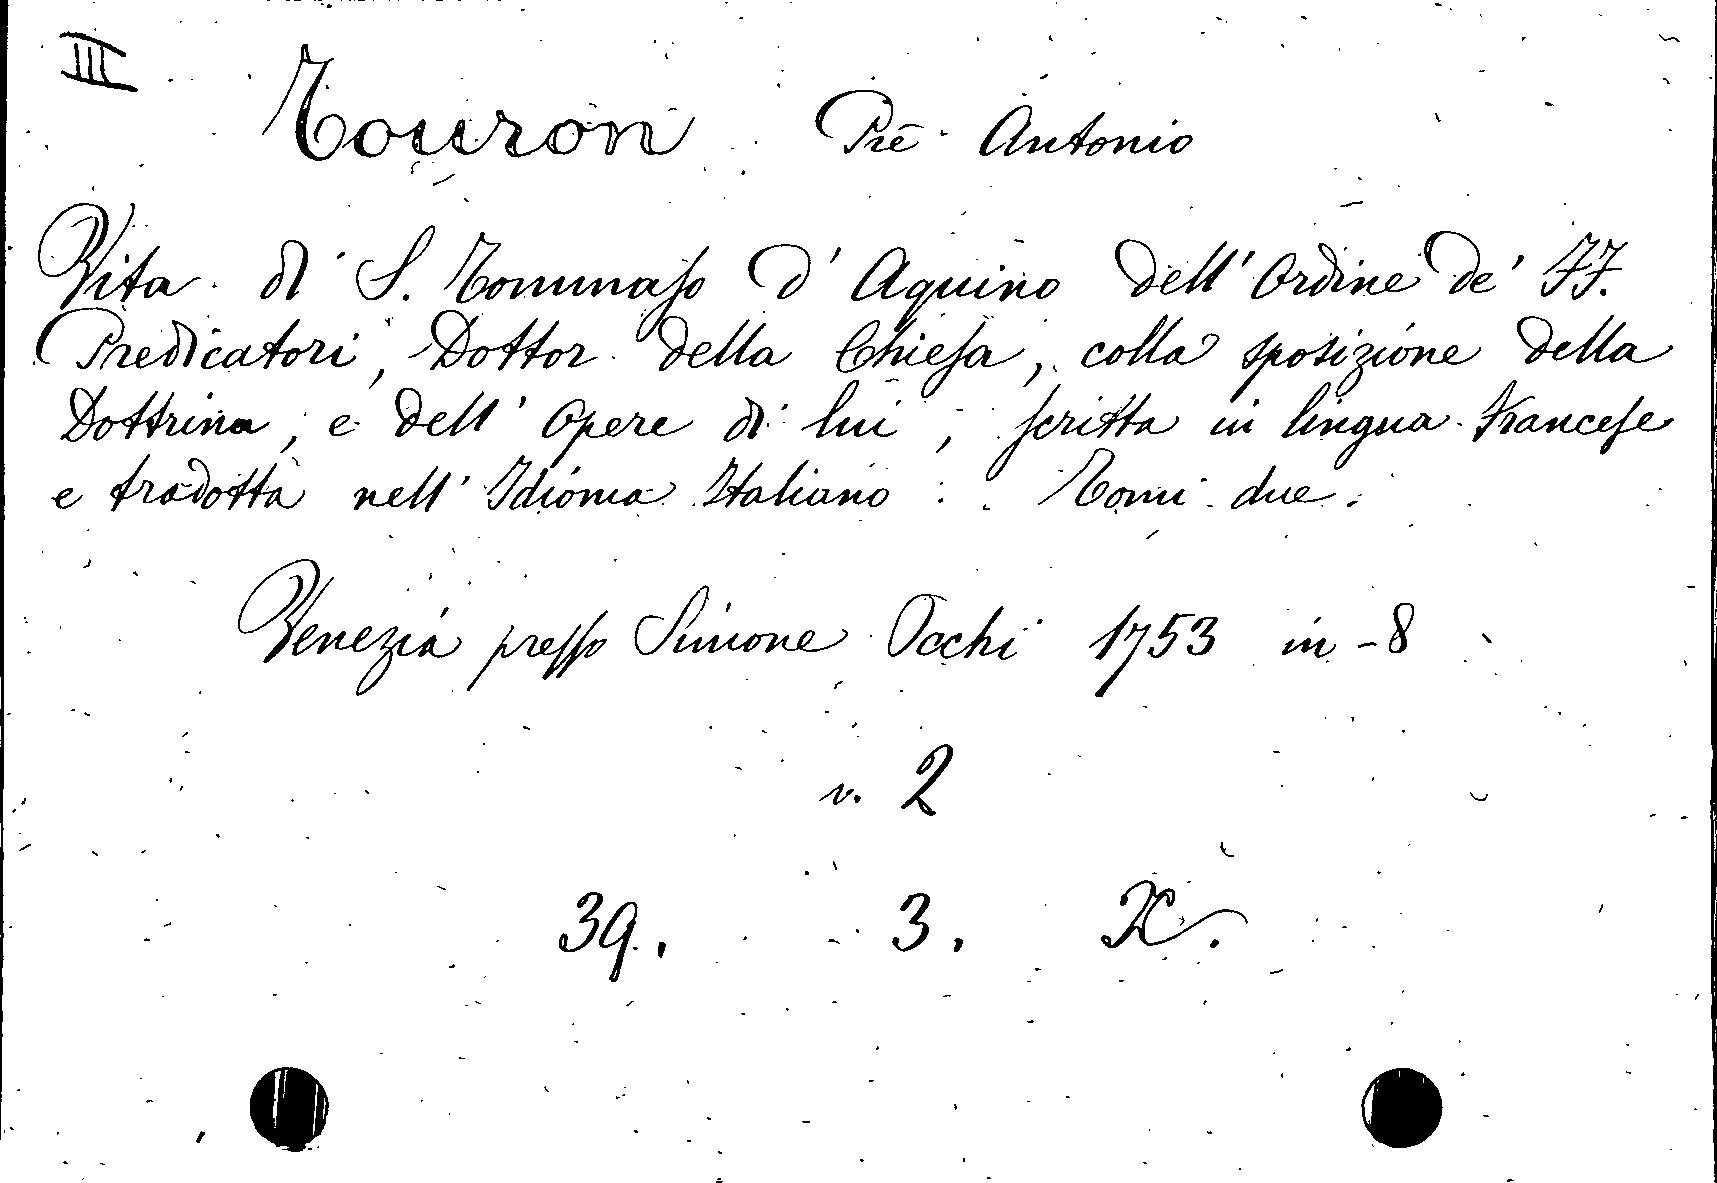 III
Touron Pre Antonio
Vita di S. Tommaso d' Aquino dell' Ordine de' FF.
Predicatori, Dottor della Chiesa, colla sposizione della
Dottrina, e dell' Opere di lui, scritta in lingua Francese
e tradotta nell' Idioma Italiano. Tomi due.
Venezia presso Simone Occhi 1753 in-8
v. 2
39. 3.